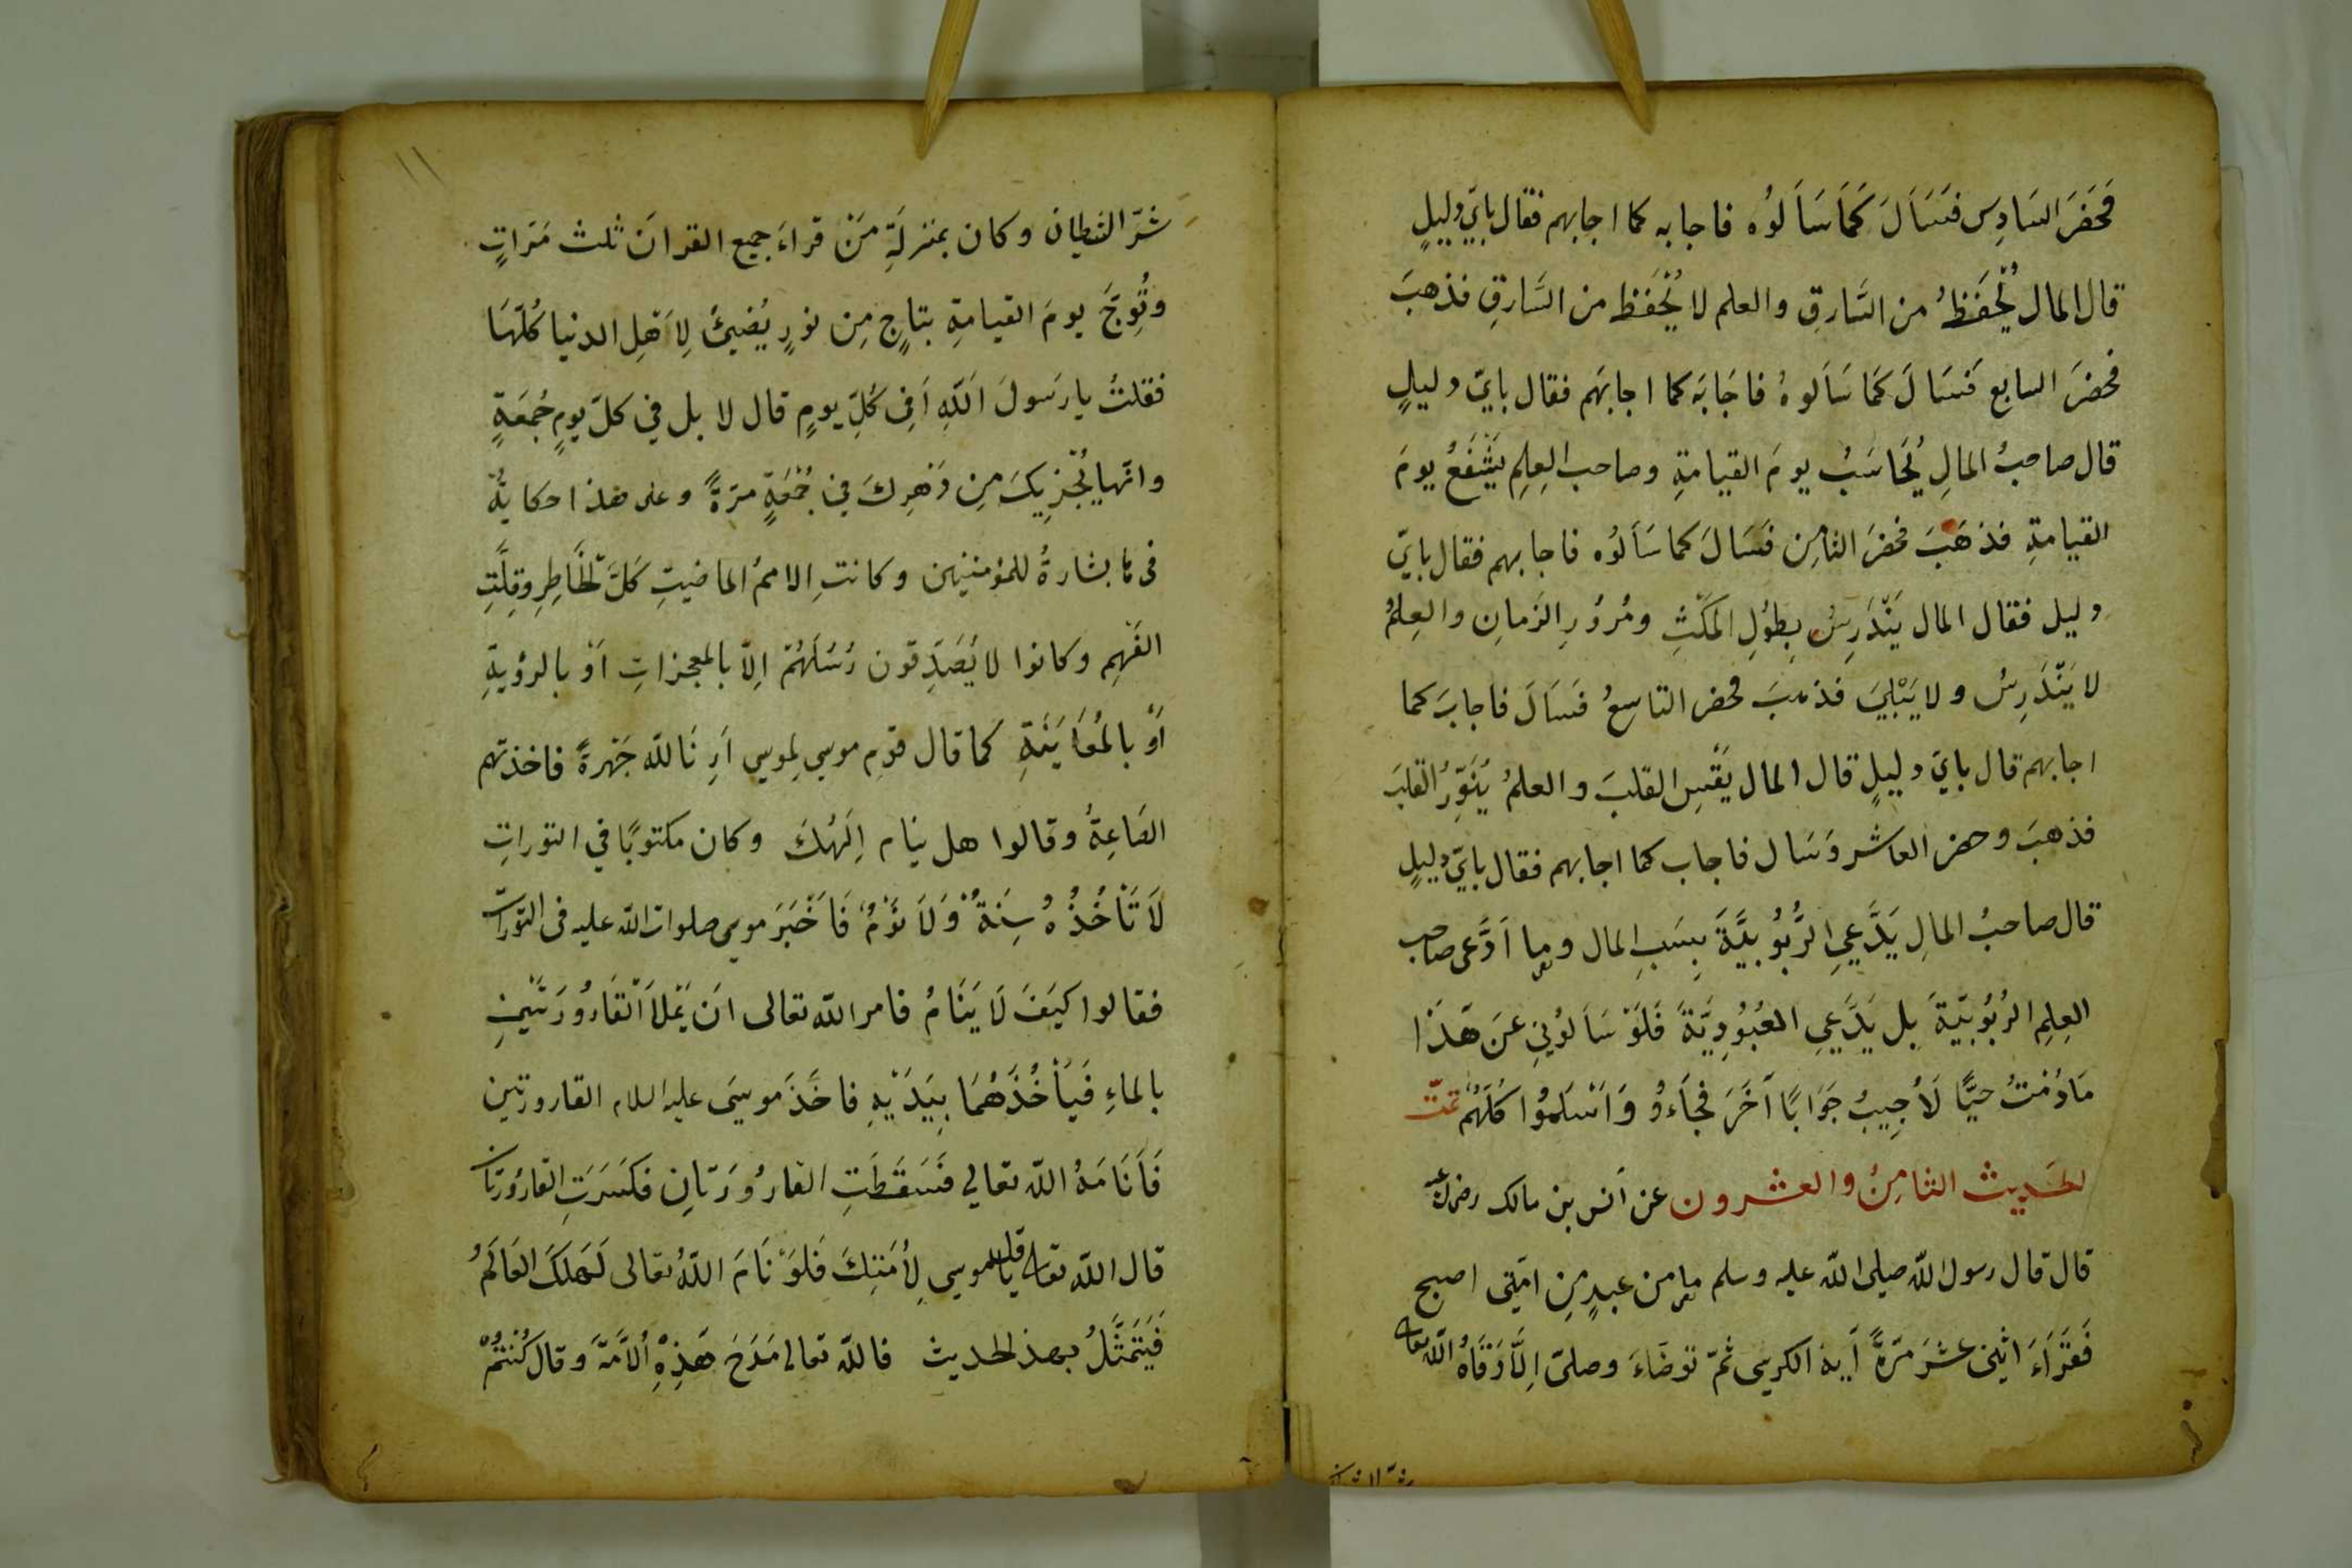 فَحَضَرَ السَادِس فَسَاَلَ كَمَا سَاَلُوْه فاجابه كما اجابهم فقال بايّ دليلٍ
قال المال يُحْفَظُ من السَّارقِ والعلم لا يُحْفَظ من السَّارقِ فذهبَ
فحضرَ السابع فَسَالَ كَمَا سَاَلوهُ فاجَابَه كما اجابَهم فقال بايّ دليلٍ
قال صاحبُ المالِ يُحَاسَبُ يومَ القيامةِ وصاحب العِلمِ يَشْفَعُ يومَ
القيامةِ فذهَبَ فحضرَ الثامِن فَسَالَ كما سَاَلُوْه فاجابهم فقال بايّ
دليل فقال المال يَنْدَرِسُ بِطُوْلِ المَكْثِ ومُرُوْرِ الزمانِ والعِلمُ
لا يَنْدَرِسُ ولا يَبْلِيَ فذهبَ فحضر التاسِعُ فَسَاَلَ فاجابَ كما
اجابهم قال بايّ دليلٍ قال المال يَقْسِ القلبَ والعلمُ يُنَوِّرُ القلبَ
فذهبَ وحضر العاشر وَسَال فاجاب كما اجابهم فقال بايّ دليلٍ
قال صاحبُ المالِ يَدَّعِي الرُّبُوْبِيَّةَ بِسَبِ المال وما اَدَّعى صاحب
العِلمِ الرُبُوْبِيَّةَ بل يَدَّعِي العُبُوْدِيَّةَ فَلَوْ سَاَلوُنِيْ عَنْ هَذَا
مَادُمْتُ حيًّا لَاُجِيبُ جَوَابًا اَخَرَ فَجَاءوُ وَاَسْلَمُوا كُلّهُمْ تمّت
الحديث الثامِنُ والعشرون عن اَنس بن مالك رضى الله عنه
قال قال رسول الله صلى الله عليه وسلم ما من عبدٍ مِن امّتِى اصبح
فَقَرَاءَ اثنى عشرَ مرّةً اَية الكرسى ثمّ توضّاءَ وصلىّ اِلَّا وَقَاهُ الله تعالى
شرّ الشيطان
١١
شرّ الشيطان وكان بمنزلَةِ مَنْ قراءَ جميع القرانَ ثلث مَرّاتٍ
وتُوِجَّ يومَ القيامةِ بتاجٍ مِن نورٍ يُضِئُ لِاَهْلِ الدنيا كُلّهَا
فقلتُ يا رسُولَ اَللّهِ اَفِى كُلِّ يومٍ قال لا بل في كلّ يومٍ جُمعَةٍ
وانّها يُجْزِيكَ مِن دَهْرِكَ في جُمْعَةٍ مرّةً وعلى هذا حكايةٌ
فيها بشارةُ للمؤمنين وكانتِ الاممُ الماضيتِ كَلَّ لخَاطِرِ وَقِلّتِ
الفَهْمِ وكانوا لا يُصَدِّقون رُسُلَهُمْ اِلّا بالمعجزاتِ اَوْ بالرؤيةِ
اَوْ بالمُعَايَنَةِ كما قال قوم موسي لِموسي اَرِنَاللّه جَهْرةً فاخذتهم
الصَاعِقةُ وقالوا هل ينام اِلَهُكَ وكان مكتوبًا في التوراتِ
لَا تَاْخُذُهُ سِنَةٌ وَلَا نَوْمٌ فَاَخْبَرَ موسى صلوات الله عليه فى التّورات
فقالوا كَيَفَ لَا يَنَامُ فامر اللّه تعالى ان يَمْلاَ القَارُورَتَيْنِ
بالماءِ فَيَاْخُذَهُمَا بِيَدَيْهِ فاخَذَ موسَى عليه السلام القارورتين
فَاَنَامَهُ اللّه تعالي فَسَقَطَتِ القارُورَتانِ فكسَرَتِ القارُوْرَتان
قال اللّه تعالى يا موسي قل لِاُمَّتِكَ فَلَوْ نَامَ اللّهُ تعالى لَهَلَكَ العَالَمُ
فَيَتَمَثَّلُ بهذ الحديث فاللّه تعالى مَدَحَ هَذِهِ الاُمَّةَ وقال كُنْتُمْ